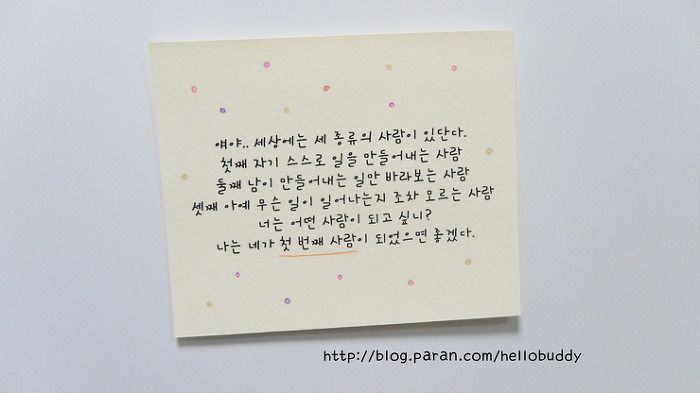 얘야.. 세상에는 세 종류의 사람이 있단다.
첫째 자기 스스로 일을 만들어내는 사람
둘째 남이 만들어내는 일만 바라보는 사람
셋째 아예 무슨 일이 일어나는지 조차 모르는 사람
너는 어떤 사람이 되고 싶니?
나는 네가 첫 번째 사람이 되었으면 좋겠다.
http://blog.paran.com/hellobuddy